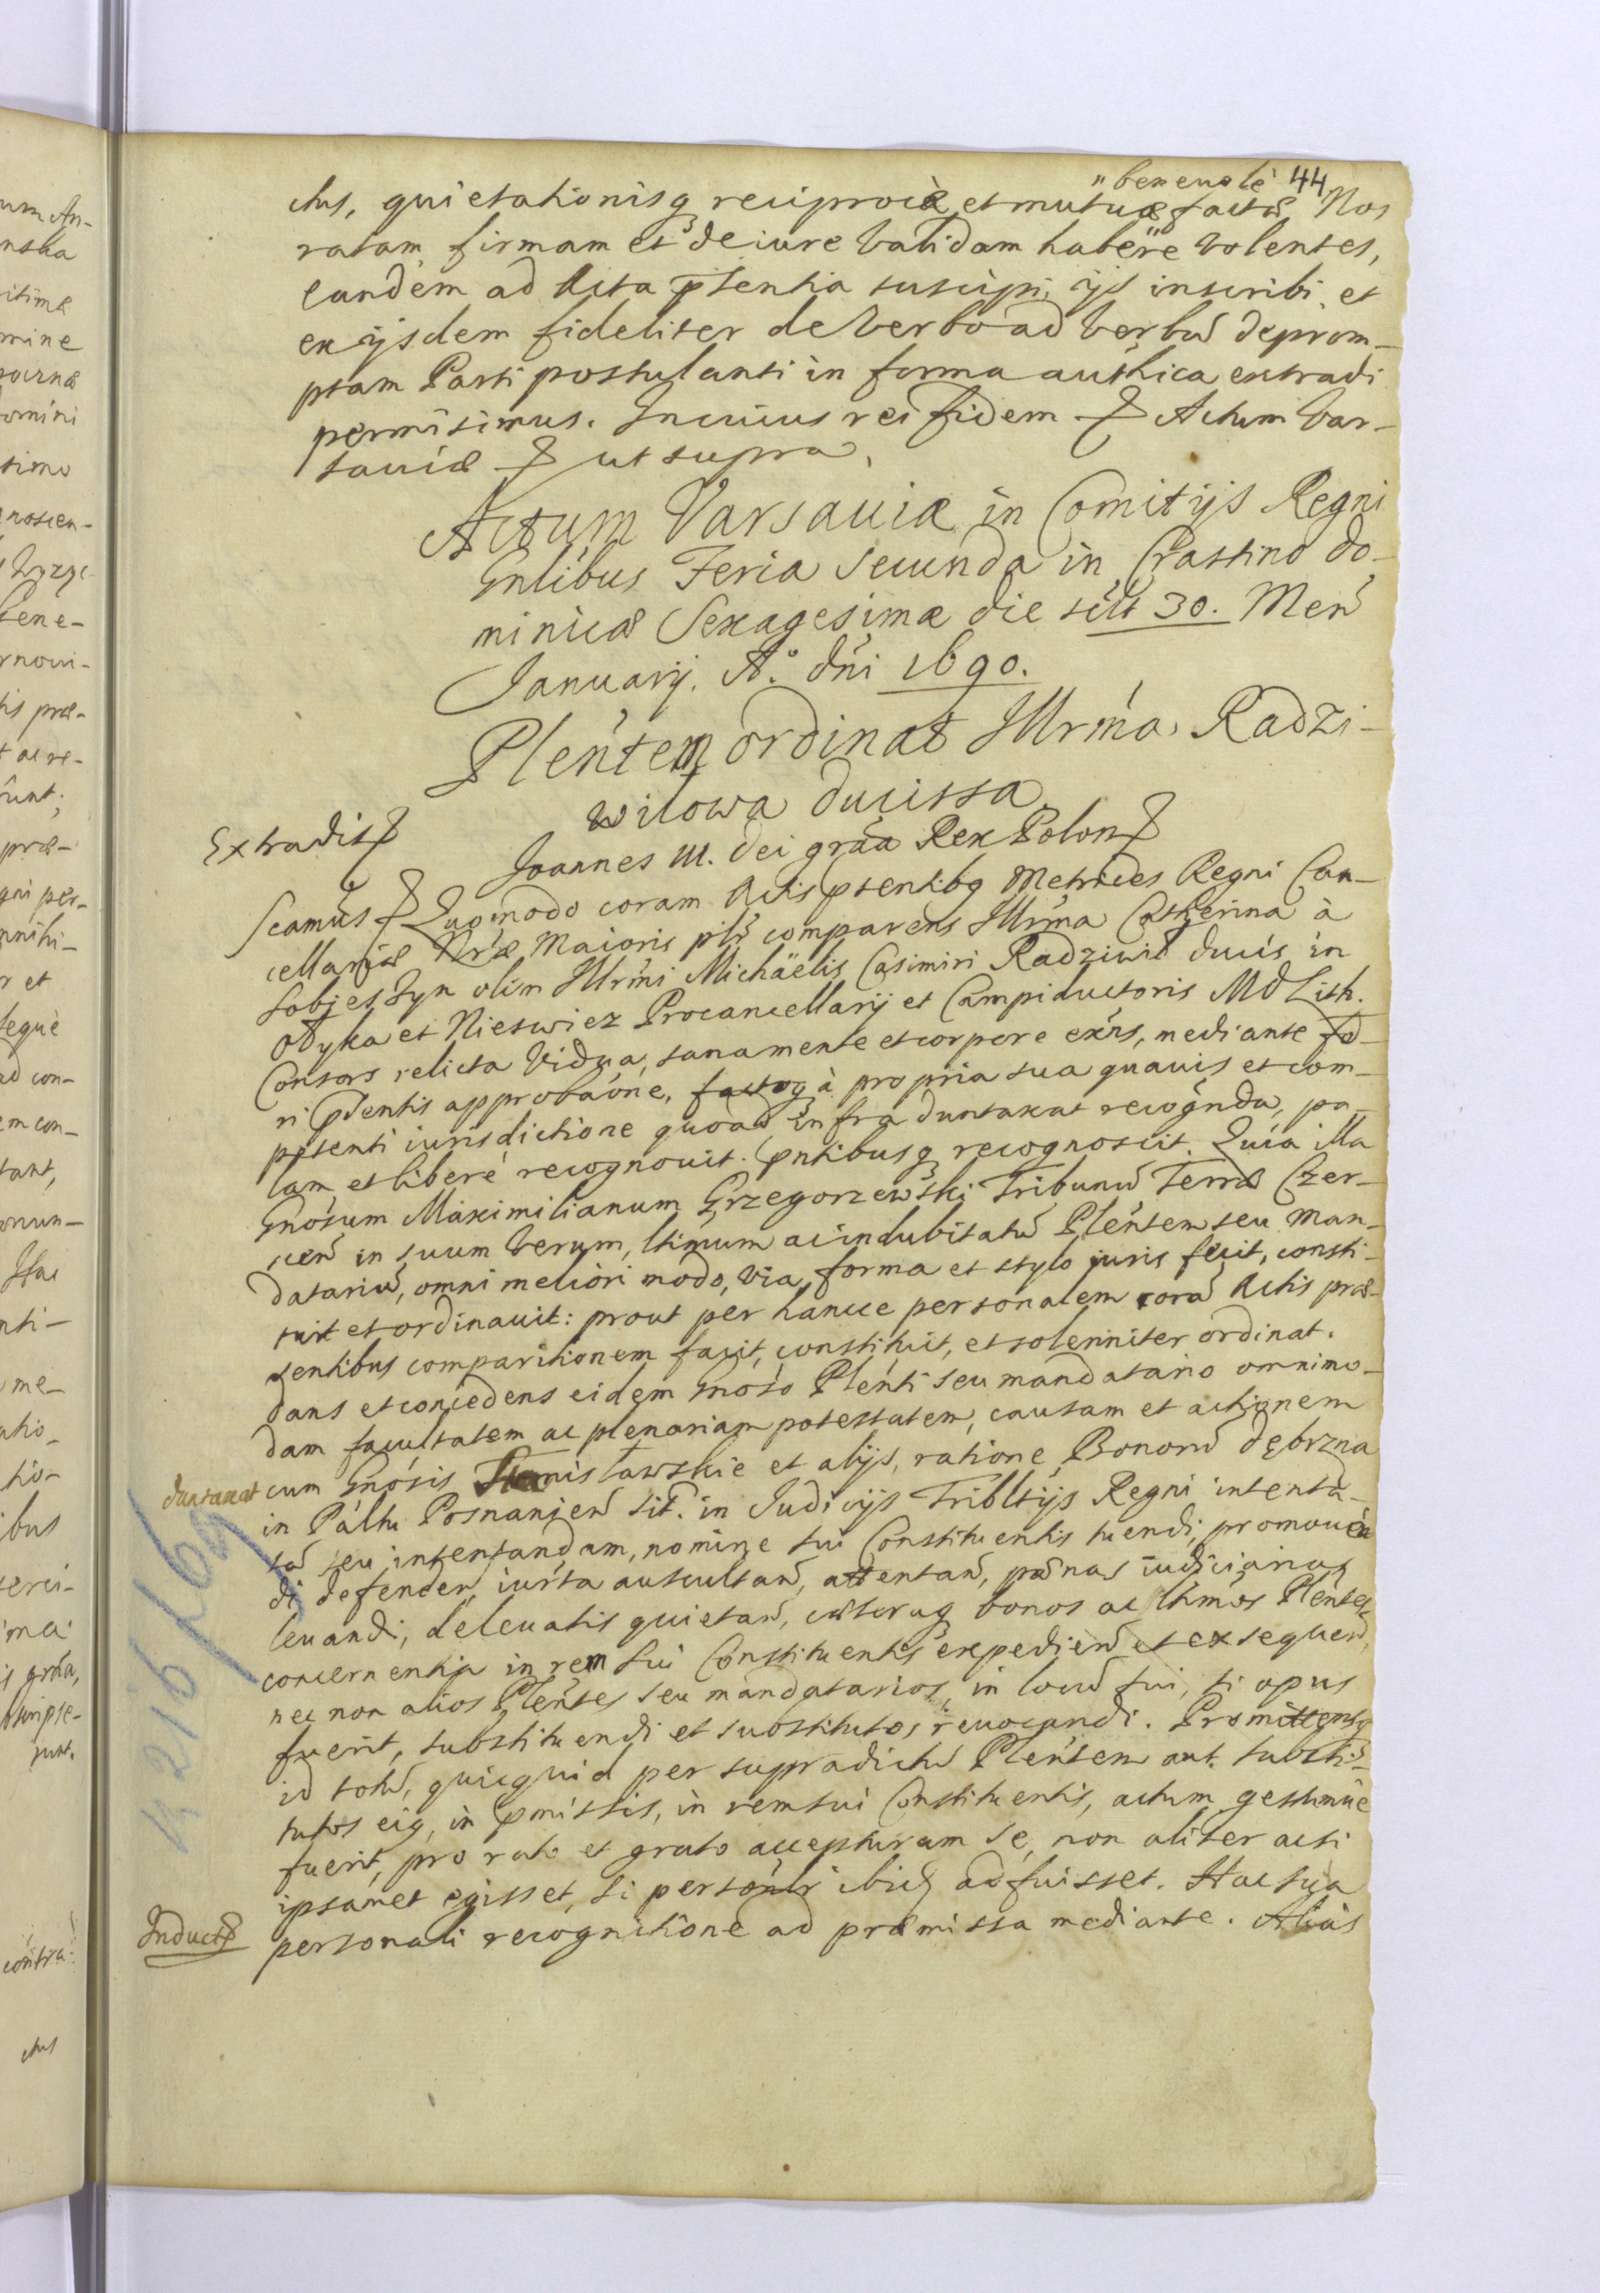 "benevolè 44
ctus, quietationisq reciprocæ et mutuæ factæ Nos
ratam, firmam et de iure validam habere volentes,
eandem ad Acta pñtentia suscipi, ijs inscribi, et
ex ijsdem fideliter de verbo ad verbũ deprom-
ptam Parti postulanti in forma authica extradi
permisimus. In cuius rei fidem Actum Var-
saviæ ut supra.
Actum Varsaviæ in Comitijs Regni
Gnlibus Feria Secunda in Crastino do-
minicæ Sexagesimæ die scilt 30. Men̄
Januarij. A.º dńi 1690.
Pleńtem ordinat Illrḿa Radzi-
wiłowa ducissa
Extradit
Joannes III. Dei grãa Rex Polon
Quomodo coram Actis pñtentibq Metrices Regni Can-
cellariæ Nræ Maioris plr̃ comparens Illrḿa Catherina à
Sobieszyn olim Illrm̃i Michäelis Casimiri Radziwił ducis in
Ołyka et Nieswiez Procancellarij et Campiductoris MDLith.
Consors relicta Vidua, sana mente et corpore exñs, mediante fo-
ri pñtentis approbãone, factoq à propria sua quavis et com-
petenti iurisdictione quoad infra duntaxat recogñda, pa-
lam et liberè recognovit. Pñtibusq recognoscit. Quia illa
Gnósum Maximilianum Grzegorzewski Tribunũ Terræ Czer-
scen̄ in suum verum, ltimum ac indubitatũ Pleńtem seu Man-
datariũ, omni meliori modo, via, forma et stylo iuris fecit, consti-
tuit et ordinavit: prout per hancce personalem corã Actis præ-
sentibus comparitionem facit, constituit, et solenniter ordinat.
dans et concedens eidem Gnoso Pleńti seu mandatario omnimo-
dam facultatem ac plenariam potestatem, causam et actionem
duntaxat cum Gnósis Stanisławskie et alijs, ratione Bonorũ dębrzna
in Páltu Posnanien̄ sit. in Judicijs Tribltijs Regni intentã-
tã seu intentandam, nomine sui Constituentis tuendi, promoven
di defenden, iur̃ta auscultan̄, attentan̄, pœnas iudiciarias
levandi, delevatis quietan̄, cæteraq bonos ac ltimos Pleńtes
concernentia in rem sui Constituentis expedien̄ et exsequen̄,
nec non alios Pleńtes seu mandatarios, in locũ sui, si opus
fuerit, substituendi et substitutos revocandi. Promittensq
id totũ, quicquid per supradictũ Pleńtem aut substi-
tutos eiq, in pmissis, in rem sui Constituentis, actum gestumve
fuerit, pro rato et grato accepturam se, non aliter acsi
ipsamet egisset, si personlr ibidẽ adfuisset. Hac sua
Induct
personali recognitione ad præmissa mediante. Aliàs